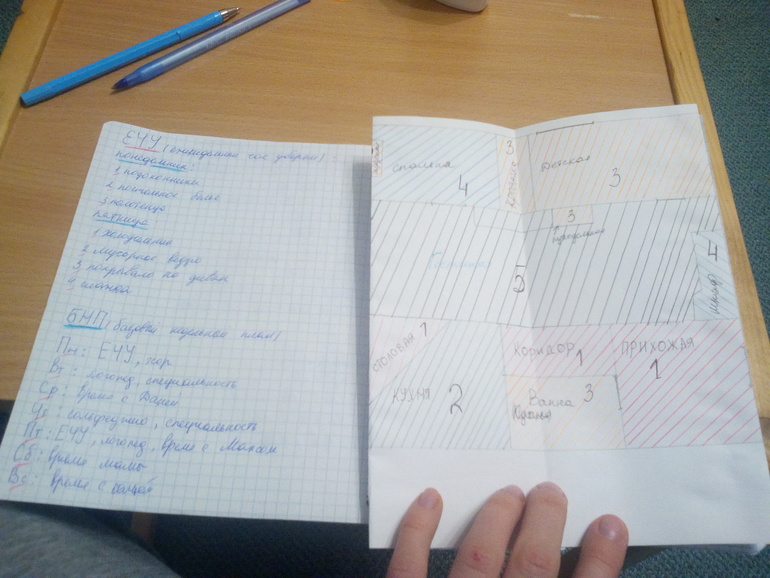 ЕЧУ (еженедельный час уборки):
понедельник:
1. подоконники
2. постельное белье
3. полотенца
пятница
1. холодильник
2. мусорное ведро
3. покрывало на диван
4.
БНП (базовый недельный план)
Пн: ЕЧУ, хор
Вт: логопед, специальность
Ср: Время с Дашей
Чт: сольфеджио, специальность
Пт: ЕЧУ, логопед, время с Максом
Сб: время мамы
Вс: Время с семьёй
спальня
4
3
Детская
3
3
5
4
СТОЛОВАЯ 1
КУХНЯ 2
КОРИДОР 1
ПРИХОЖАЯ
1
Ванна 3